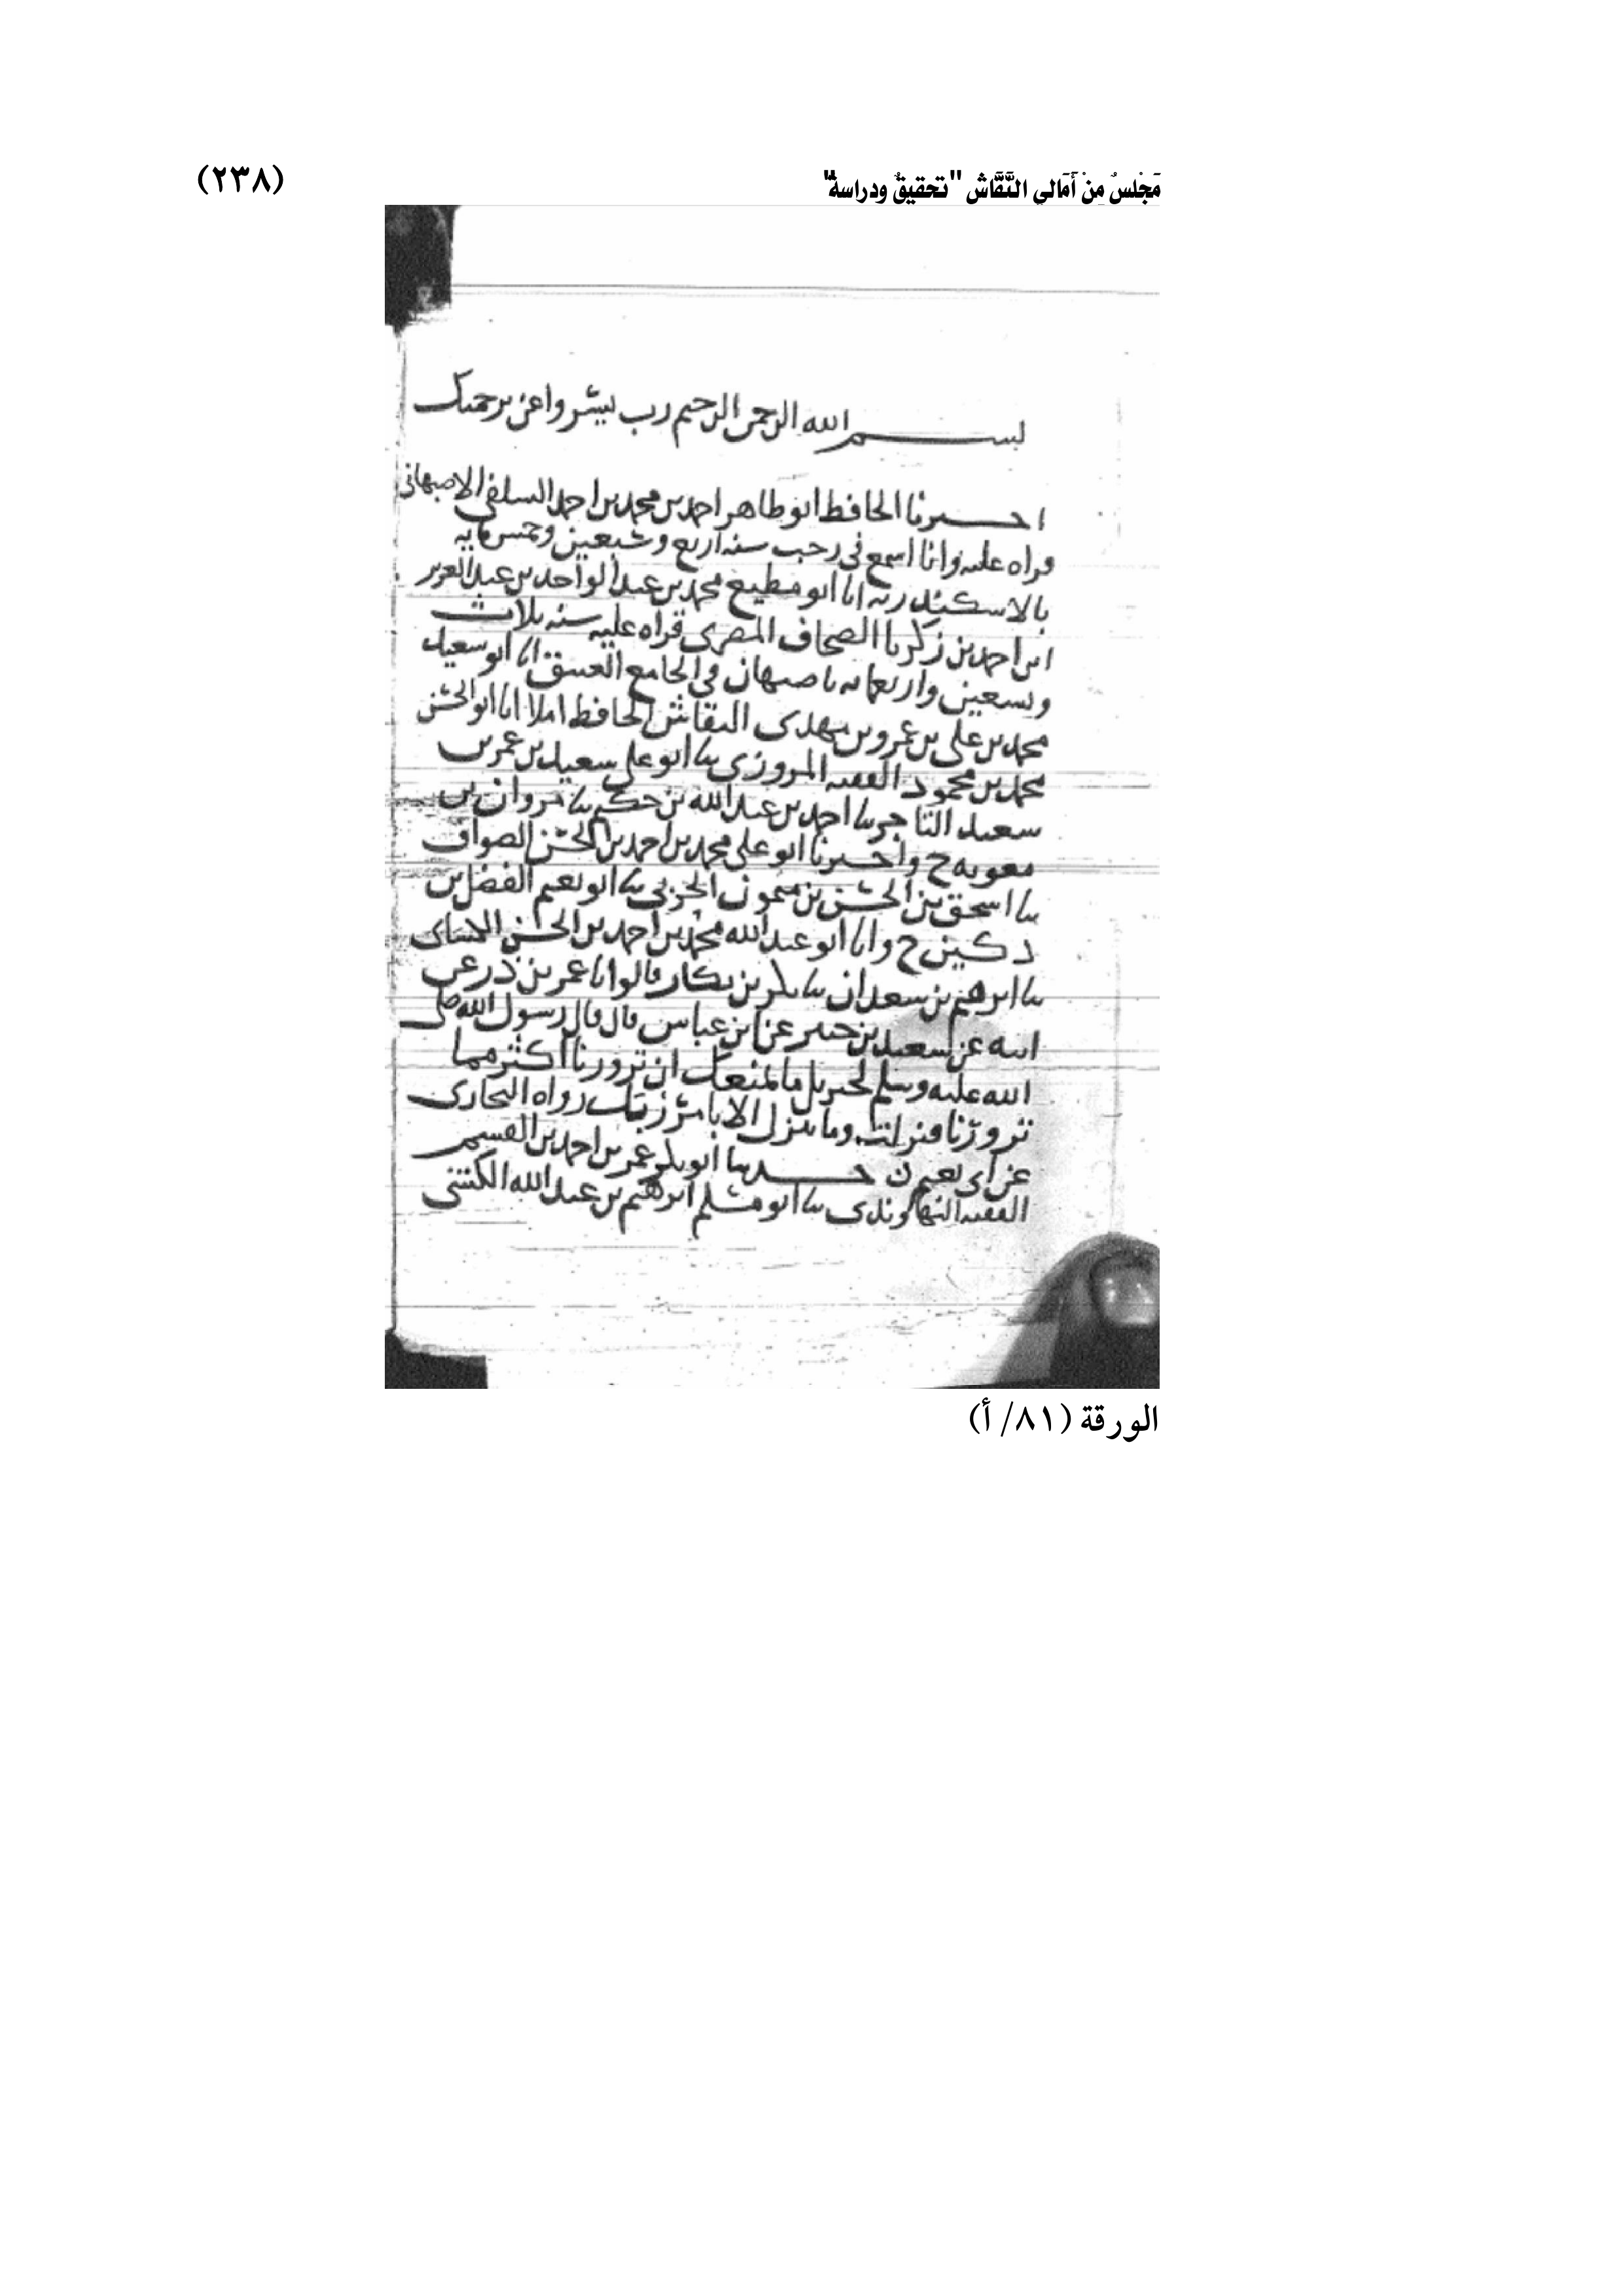 مَجْلسٌ مِنْ أَمَالي النَّقَّاش "تحقيقٌ ودراسةٌ"
(٢٣٨)
بسم الله الرحمن الرحيم رب يسّر واعن برحمتك
اخبرنا الحافظ ابو طاهر احمد بن محمد بن احمد السلفي الاصبهاني
قراه عليه وانا اسمع في رجب سنه اربع وسبعين وخمس مايه
بالاسكندريه انا ابو مطيع محمد بن عبد الواحد بن عبد العزيز
ابن احمد بن زكريا الصحاف المصري قراه عليه سنه ثلاث
وتسعين واربعمايه باصبهان في الجامع العتيق انا ابو سعيد
محمد بن علي بن عمرو بن مهدي النقاش الحافظ املا انا ابو الحسن
محمد بن محمود الفقيه المروزي ثنا ابو علي سعيد بن عمر بن
سعيد التاجر ثنا احمد بن عبد الله بن حكيم ثنا مروان بن
معويه ح واخبرنا ابو علي محمد بن احمد بن الحسن الصواف
ثنا اسحق بن الحسن بن ميمون الحربي ثنا ابو نعيم الفضل بن
دكين ح وانا ابو عبد الله محمد بن احمد بن الحسن
ثنا ابرهيم بن سعدان ثنا بكر بن بكار قالوا انا عمر بن ذر عن
ابيه عن سعيد بن جبير عن ابن عباس قال قال رسول الله صلى
الله عليه وسلم لجبريل ما يمنعك ان تزورنا اكثر مما
تزورنا فنزلت وما نتنزل الا بامر ربك رواه البخاري
عن ابي نعيم ن حدثنا ابو بكر عمر بن احمد بن القسم
الفقيه النهاوندي ثنا ابو مسلم ابرهيم بن عبد الله الكشي
الورقة (٨١/ أ)